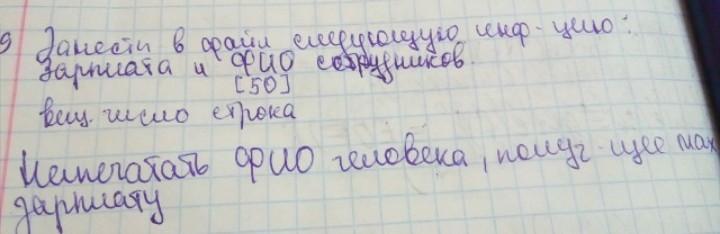 9 Занести в файл следующую инф-цию:
зарплата и ФИО сотрудников.
[50]
вещ. число строка
Напечатать ФИО человека, получ-щее мах
зарплату